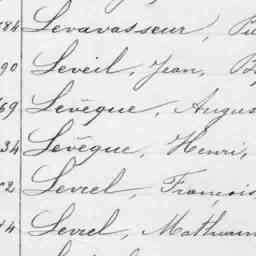 84 Levavasseur, Pie
90 Leveil, Jean, B
69 Levêque, Augus
34 Levêque, Henri,
2 Levrel, François
4 Levrel, Mathurin